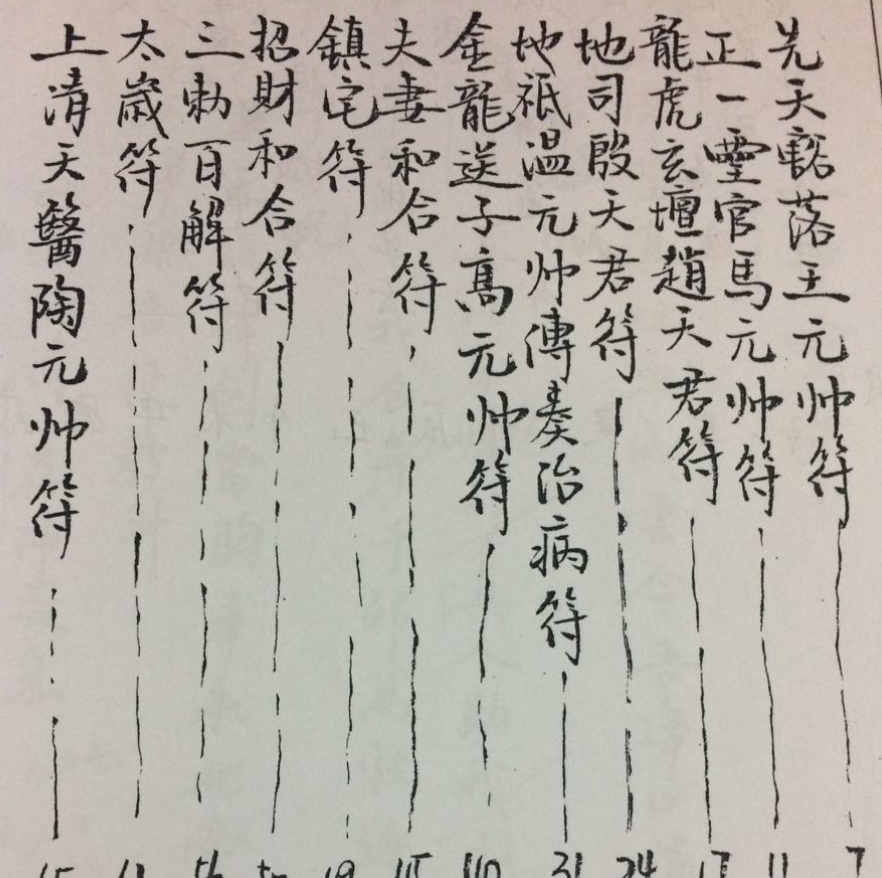 先天豁落王元帅符
正一靈官馬元帅符
龍虎玄壇趙天君符
地司殷天君符
地祇温元帅傳奏治病符
金龍送子高元帅符
夫妻和合符
鎮宅符
招財和合符
三勅百解符
太歲符
上清天醫陶元帅符